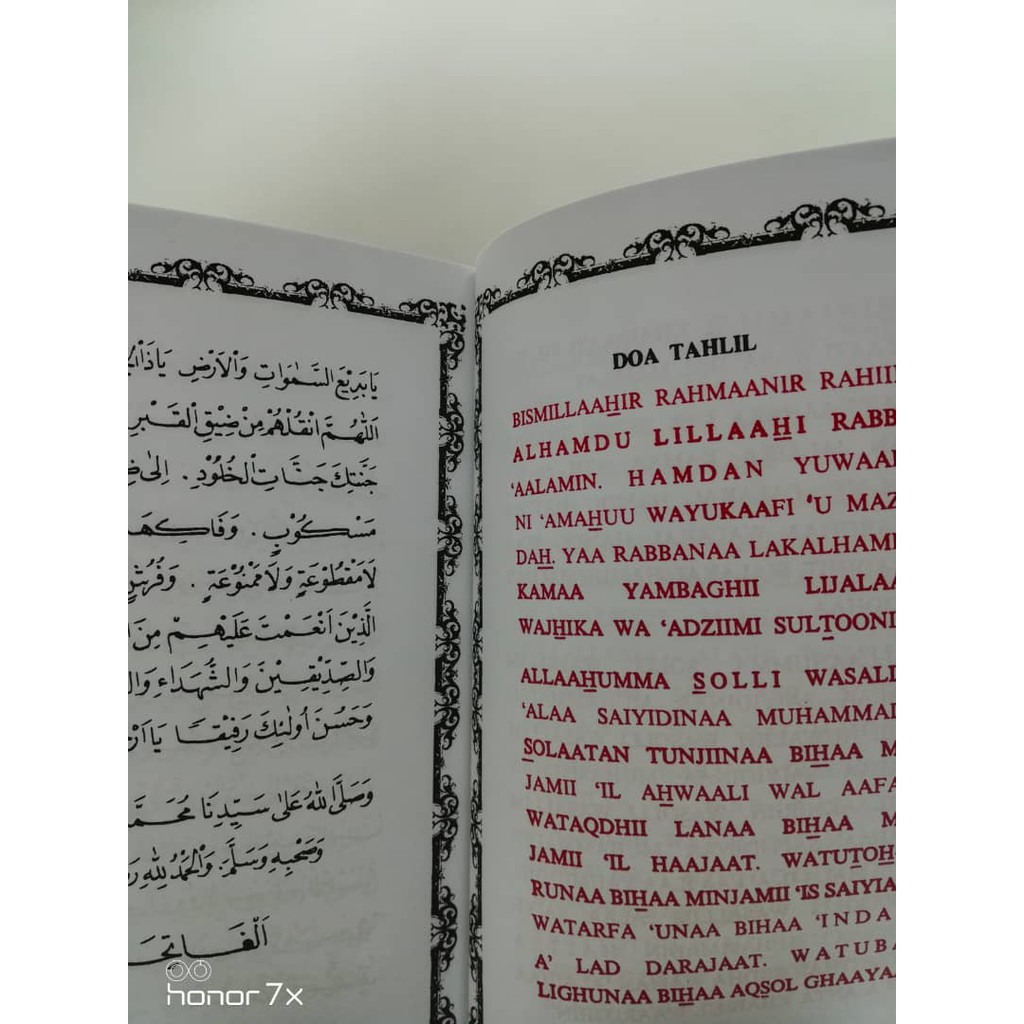 يَابَدِيْعَ السَّمٰوَاتِ وَالْاَرْضِ يَاذَا
اَللّٰهُمَّ انْقُلْهُمْ مِنْ ضِيْقِ الْقَبْرِ
جَنَّتِكَ جَنَّاتِ الْخُلُوْدِ. اِلٰى
مَسْكُوْبٍ. وَفَاكِهَ
لَامَقْطُوْعَةٍ وَلَامَمْنُوْعَةٍ. وَفُرُشٍ
الَّذِيْنَ اَنْعَمْتَ عَلَيْهِمْ مِنَ
وَالصِّدِّيْقِيْنَ وَالشُّهَدَاءِ
وَحَسُنَ اُولٰئِكَ رَفِيْقًا يَا
وَصَلَّى اللهُ عَلٰى سَيِّدِنَا مُحَمَّ
وَصَحْبِهِ وَسَلَّمَ. وَالْحَمْدُ لِلّٰهِ
اَلْفَاتِحَ
DOA TAHLIL
BISMILLAAHIR RAHMAANIR RAHII
ALHAMDU LILLAAHI RABB
'AALAMIN. HAMDAN YUWAA
NI 'AMAHUU WAYUKAAFI 'U MAZ
DAH. YAA RABBANAA LAKALHAM
KAMAA YAMBAGHII LIJALAA
WAJHIKA WA 'ADZIIMI SULTOONI
ALLAAHUMMA SOLLI WASALL
'ALAA SAIYIDINAA MUHAMMA
SOLAATAN TUNJIINAA BIHAA M
JAMII 'IL AHWAALI WAL AAFA
WATAQDHII LANAA BIHAA M
JAMII 'IL HAAJAAT. WATUTOH
RUNAA BIHAA MINJAMII 'IS SAIYIA
WATARFA 'UNAA BIHAA 'INDA
A' LAD DARAJAAT. WATUBA
LIGHUNAA BIHAA AQSOL GHAAYAA
honor 7x